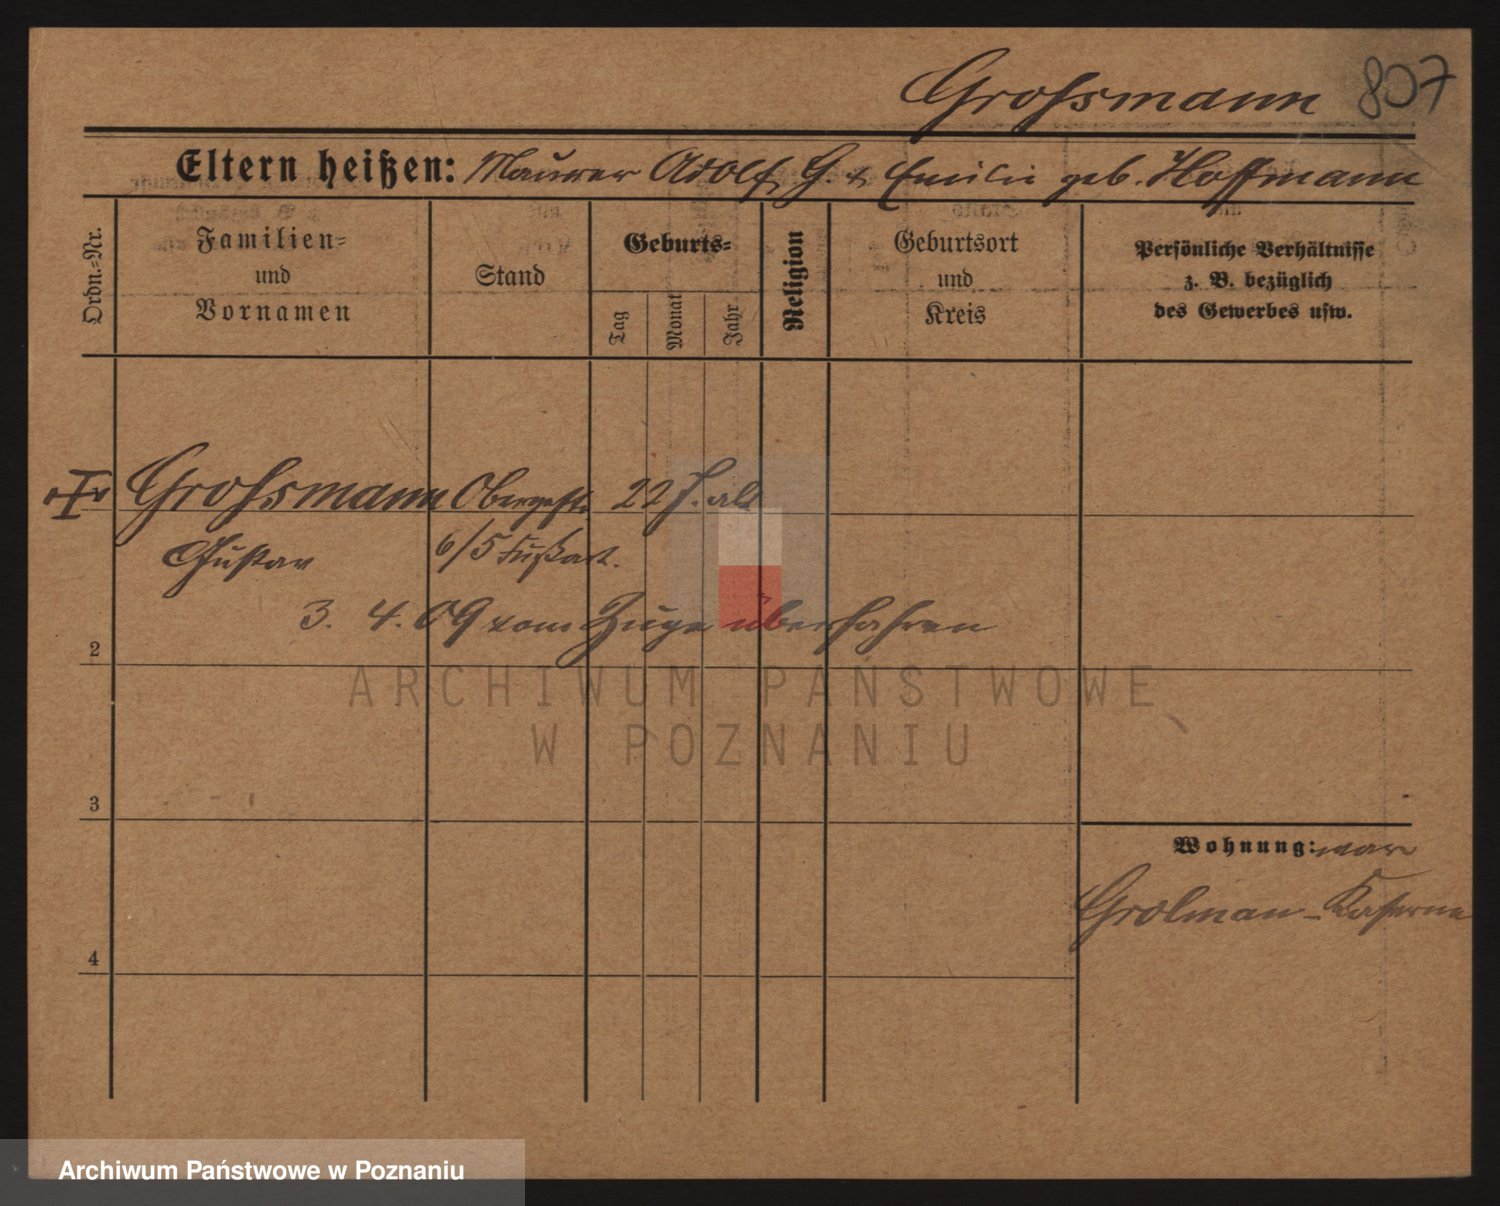 Grossmann 807
Eltern heißen: Maurer Adolf G. & Emilie geb. Hoffmann
Ordn.-Nr.
Familien-
und
Vornamen
Stand
Geburts-
Tag
Monat
Jahr
Religion
Geburtsort
und
Kreis
Persönliche Verhältnisse
z. B. bezüglich
des Gewerbes usw.
Grossmann Obergefr. 22 J. alt
Gustav 6/5 Fußart.
3. 4. 09 vom Zuge überfahren
2
ARCHIWUM PAŃSTWOWE
W POZNANIU
3
Wohnung: war
Grolman-Kaserne
4
Archiwum Państwowe w Poznaniu